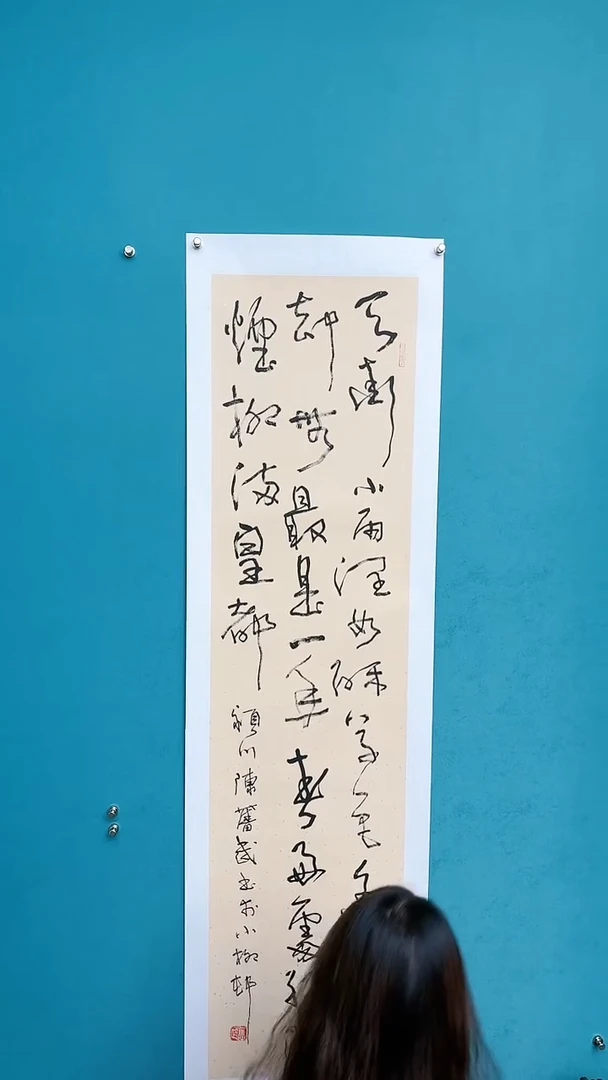 天街小雨潤如酥草色
却無最是一年春好處
煙柳滿皇都
潁川陳書於小柳邨